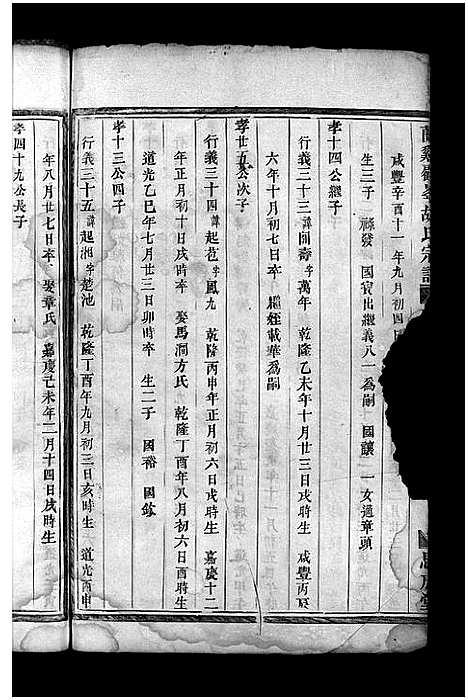 咸豐辛酉十一年九月初四日
生三子 祿發 國賓出繼義八一為嗣 國讓 一女適章頭
孝十四公繼子
行義三十三諱開壽字萬年 乾隆乙未年十月廿三日戌時生 咸豐丙辰
六年十月初七日卒 繼姪載華為嗣
孝廿五公次子
行義三十四諱起苞字鳳九 乾隆丙申年正月初六日戌時生 嘉慶十二
年正月初十日戌時卒 娶馬澗方氏 乾隆丁酉年八月初六日酉時生
道光乙巳年七月廿三日卯時卒 生二子 國裕 國欽
孝十三公四子
行義三十五諱起湘字楚池 乾隆丁酉年九月初三日亥時生 道光丙申
年八月廿七日卒 娶章氏 嘉慶己未年二月十四日戌時生
孝四十九公長子
胡氏宗譜